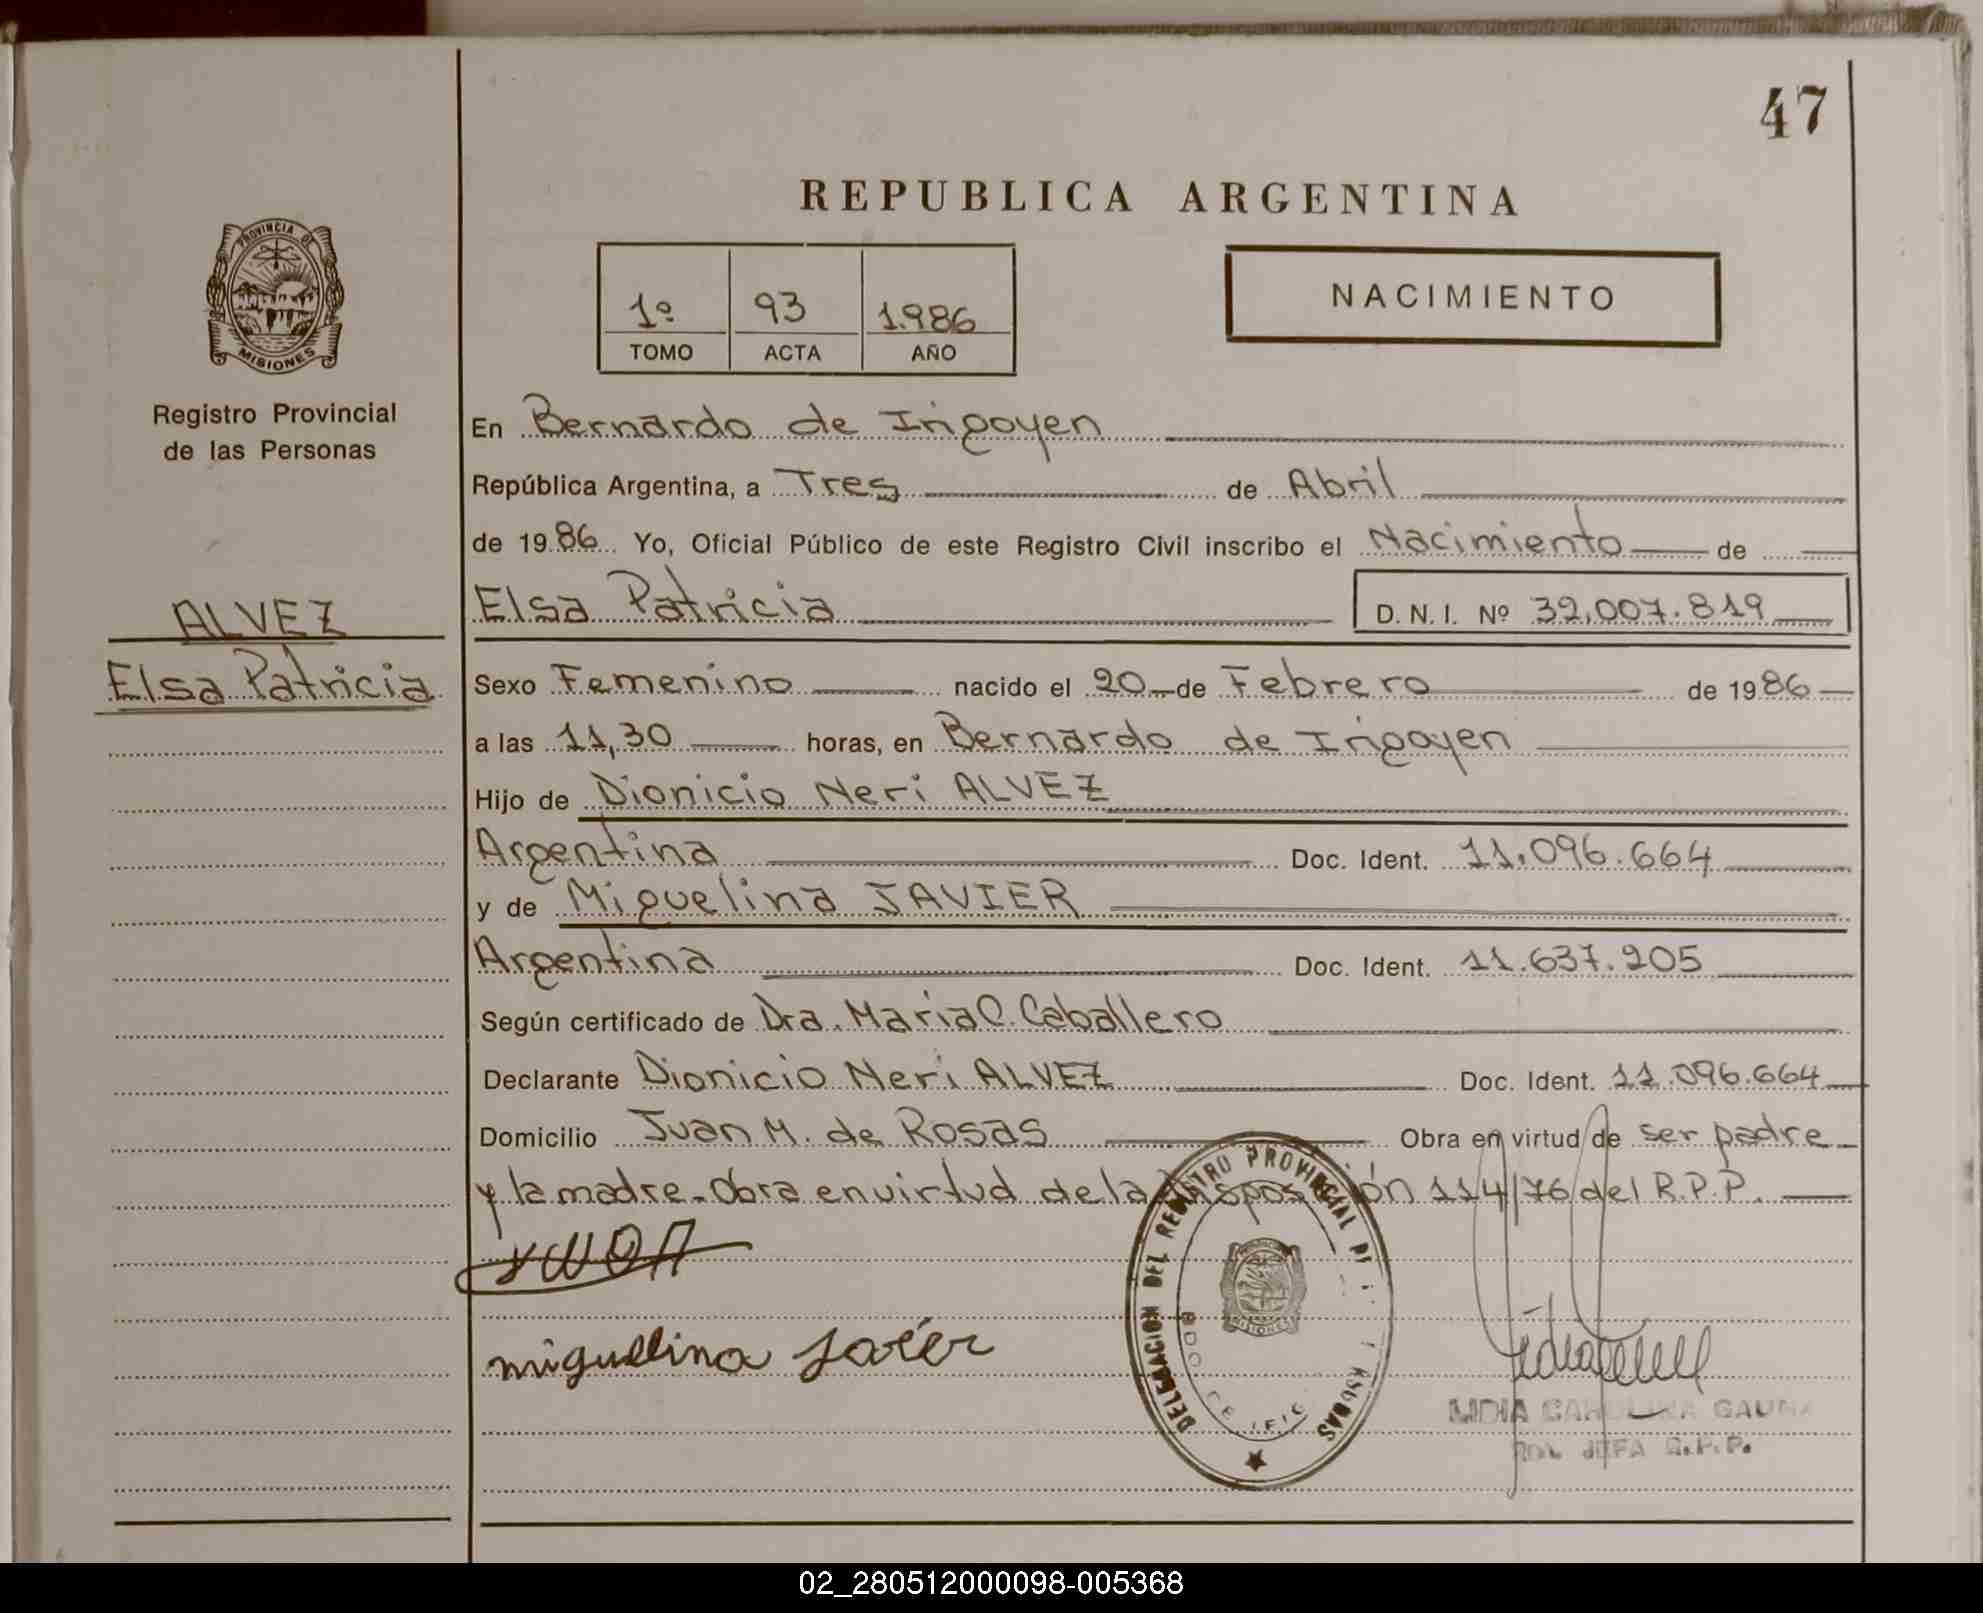 47
REPUBLICA ARGENTINA
PROVINCIA DE
MISIONES
1º 93 1.986
TOMO ACTA AÑO
NACIMIENTO
Registro Provincial
de las Personas
En Bernardo de Irigoyen
República Argentina, a Tres de Abril
de 19 86 Yo, Oficial Público de este Registro Civil inscribo el Nacimiento de
ALVEZ
Elsa Patricia
Elsa Patricia D.N.I. Nº 32.007.819
Sexo Femenino nacido el 20 de Febrero de 19 86
a las 11,30 horas, en Bernardo de Irigoyen
Hijo de Dionicio Neri ALVEZ
Argentina Doc. Ident. 11.096.664
y de Miguelina JAVIER
Argentina Doc. Ident. 11.637.205
Según certificado de Dra. Maria C. Caballero
Declarante Dionicio Neri ALVEZ Doc. Ident. 11.096.664
Domicilio Juan M. de Rosas Obra en virtud de ser padre
y la madre. Obra en virtud de la Disposición 114/76 del R.P.P.
DELEGACION DEL REGISTRO PROVINCIAL DE
MISIONES
miguelina
LIDIA CAROLINA GAUNA
JEFA R.P.P.
02_280512000098-005368